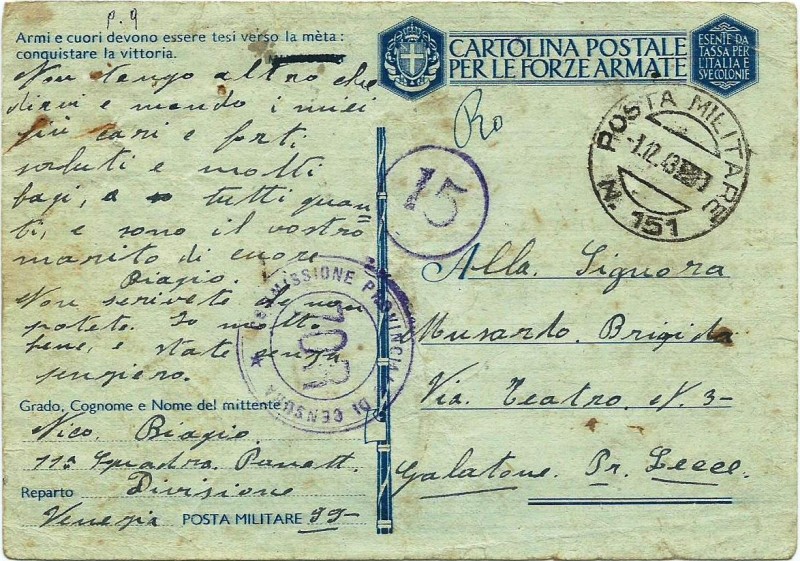 P. 9
Armi e cuori devono essere tesi verso la mèta:
conquistare la vittoria.
Non tengo altro che
dirvi e mando i miei
più cari e forti
saluti e molti
bagi, a tutti quan
ti, e sono il vostro
marito di cuore
Biagio.
Non scrivete di non
potete. Io molto
bene, e state senza
penziero.
Grado, Cognome e Nome del mittente
Nico. Biagio.
11ª Squadra. Panett.
Reparto Divisione
Venezia POSTA MILITARE 99-
CARTOLINA POSTALE
PER LE FORZE ARMATE
ESENTE DA
TASSA PER
L'ITALIA E
SUE COLONIE
Ro
15
POSTA MILITARE
-1.12.43
N. 151
COMMISSIONE PROVINCIALE DI CENSURA
103R
Alla. Signora
Musardo. Brigida
Via. Teatro. N. 3-
Galatone. Pr. Lecce.